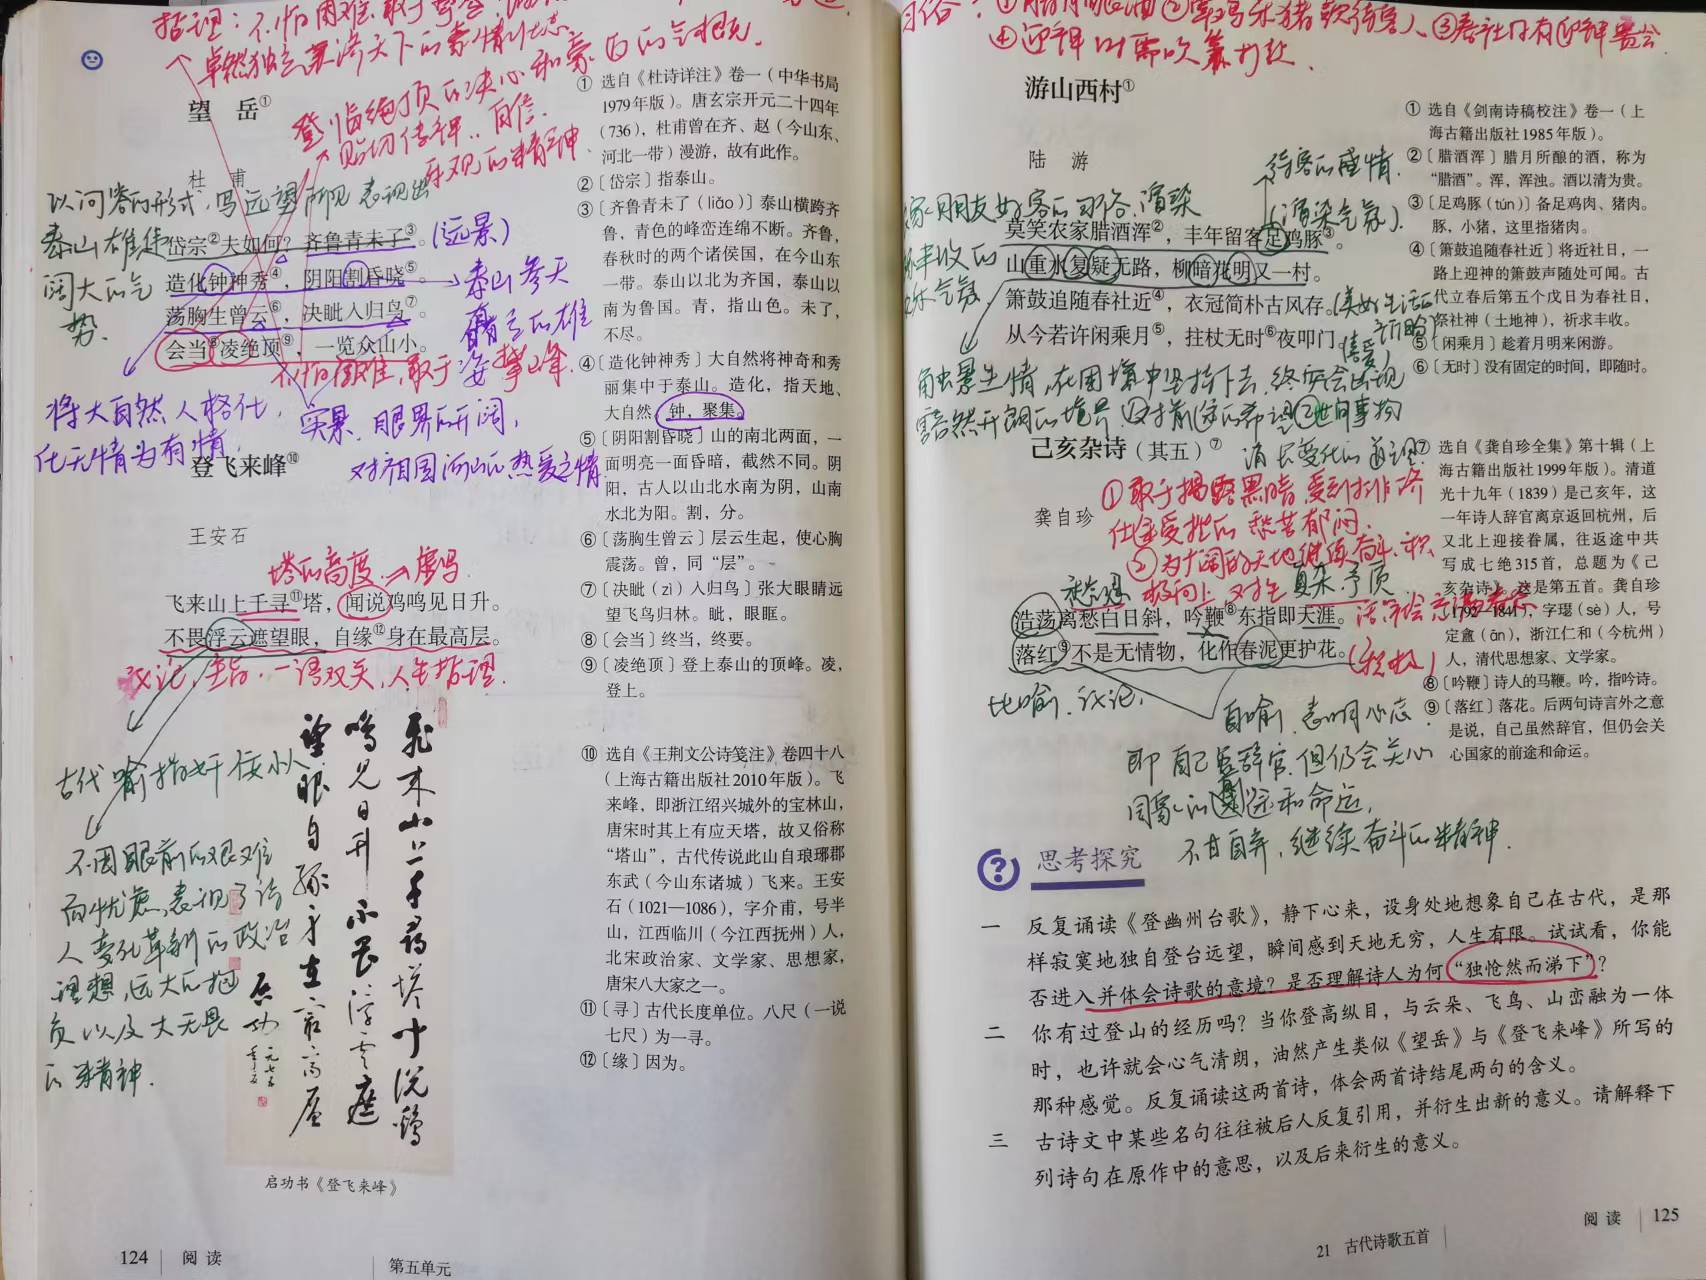 望岳①
杜甫
岱宗②夫如何？齐鲁青未了③。
造化钟神秀④，阴阳割昏晓⑤。
荡胸生曾云⑥，决眦入归鸟⑦。
会当⑧凌绝顶⑨，一览众山小。
登飞来峰⑩
王安石
飞来山上千寻⑪塔，闻说鸡鸣见日升。
不畏浮云遮望眼，自缘⑫身在最高层。
卓然独立兼济天下的豪情壮志
登临绝顶的决心和豪迈的气概.
贴切传神..自信.
乐观的精神
以问答的形式,写远望所见 表现出
泰山雄伟
阔大的气
势.
(远景)
泰山参天
的雄
姿
不怕困难,敢于攀登
将大自然人格化,
化无情为有情
实景,眼界的开阔,
对祖国河山的热爱之情
塔的高度→虚写
议论,一语双关,人生哲理.
古代喻指奸佞小人
不因眼前的艰难
而忧虑,表现了诗
人变化革新的政治
理想,远大的抱
负以及大无畏
的精神.
飞来山上千寻塔 闻说鸡
鸣见日升 不畏浮云遮
望眼自缘身在最高层
启功
启功书《登飞来峰》
① 选自《杜诗详注》卷一（中华书局
1979年版）。唐玄宗开元二十四年
（736），杜甫曾在齐、赵（今山东、
河北一带）漫游，故有此作。
②〔岱宗〕指泰山。
③〔齐鲁青未了（liǎo）〕泰山横跨齐
鲁，青色的峰峦连绵不断。齐鲁，
春秋时的两个诸侯国，在今山东
一带。泰山以北为齐国，泰山以
南为鲁国。青，指山色。未了，
不尽。
④〔造化钟神秀〕大自然将神奇和秀
丽集中于泰山。造化，指天地、
大自然。钟，聚集。
⑤〔阴阳割昏晓〕山的南北两面，一
面明亮一面昏暗，截然不同。阴
阳，古人以山北水南为阴，山南
水北为阳。割，分。
⑥〔荡胸生曾云〕层云生起，使心胸
震荡。曾，同“层”。
⑦〔决眦（zì）入归鸟〕张大眼睛远
望飞鸟归林。眦，眼眶。
⑧〔会当〕终当，终要。
⑨〔凌绝顶〕登上泰山的顶峰。凌，
登上。
⑩ 选自《王荆文公诗笺注》卷四十八
（上海古籍出版社2010年版）。飞
来峰，即浙江绍兴城外的宝林山，
唐宋时其上有应天塔，故又俗称
“塔山”，古代传说此山自琅琊郡
东武（今山东诸城）飞来。王安
石（1021—1086），字介甫，号半
山，江西临川（今江西抚州）人，
北宋政治家、文学家、思想家，
唐宋八大家之一。
⑪〔寻〕古代长度单位。八尺（一说
七尺）为一寻。
⑫〔缘〕因为。
124 阅读
第五单元
③春社日有迎神赛会
④迎神时需吹箫打鼓.
游山西村①
陆游
莫笑农家腊酒浑②，丰年留客足鸡豚③。
山重水复疑无路，柳暗花明又一村。
箫鼓追随春社近④，衣冠简朴古风存。
从今若许闲乘月⑤，拄杖无时⑥夜叩门。
待客的盛情.
(渲染气氛).
丰收的
己亥杂诗（其五）⑦
龚自珍
浩荡离愁白日斜，吟鞭⑧东指即天涯。
落红⑨不是无情物，化作春泥更护花。
①敢于揭露黑暗,受到排挤
仕途受挫的愁苦郁闷.
比喻,议论,
自喻,表明心志
即自己虽辞官,但仍会关心
国家的前途和命运,
不甘自弃,继续奋斗的精神.
① 选自《剑南诗稿校注》卷一（上
海古籍出版社1985年版）。
②〔腊酒浑〕腊月所酿的酒，称为
“腊酒”。浑，浑浊。酒以清为贵。
③〔足鸡豚（tún）〕备足鸡肉、猪肉。
豚，小猪，这里指猪肉。
④〔箫鼓追随春社近〕将近社日，一
路上迎神的箫鼓声随处可闻。古
代立春后第五个戊日为春社日，
祭社神（土地神），祈求丰收。
⑤〔闲乘月〕趁着月明来闲游。
⑥〔无时〕没有固定的时间，即随时。
⑦ 选自《龚自珍全集》第十辑（上
海古籍出版社1999年版）。清道
光十九年（1839）是己亥年，这
一年诗人辞官离京返回杭州，后
又北上迎接眷属，往返途中共
写成七绝315首，总题为《己
亥杂诗》。这是第五首。龚自珍
（1792—1841），字璱（sè）人，号
定盦（ān），浙江仁和（今杭州）
人，清代思想家、文学家。
⑧〔吟鞭〕诗人的马鞭。吟，指吟诗。
⑨〔落红〕落花。后两句诗言外之意
是说，自己虽然辞官，但仍会关
心国家的前途和命运。
思考探究
一 反复诵读《登幽州台歌》，静下心来，设身处地想象自己在古代，是那
样寂寞地独自登台远望，瞬间感到天地无穷，人生有限。试试看，你能
否进入并体会诗歌的意境？是否理解诗人为何“独怆然而涕下”？
二 你有过登山的经历吗？当你登高纵目，与云朵、飞鸟、山峦融为一体
时，也许就会心气清朗，油然产生类似《望岳》与《登飞来峰》所写的
那种感觉。反复诵读这两首诗，体会两首诗结尾两句的含义。
三 古诗文中某些名句往往被后人反复引用，并衍生出新的意义。请解释下
列诗句在原作中的意思，以及后来衍生的意义。
21 古代诗歌五首
阅读 125